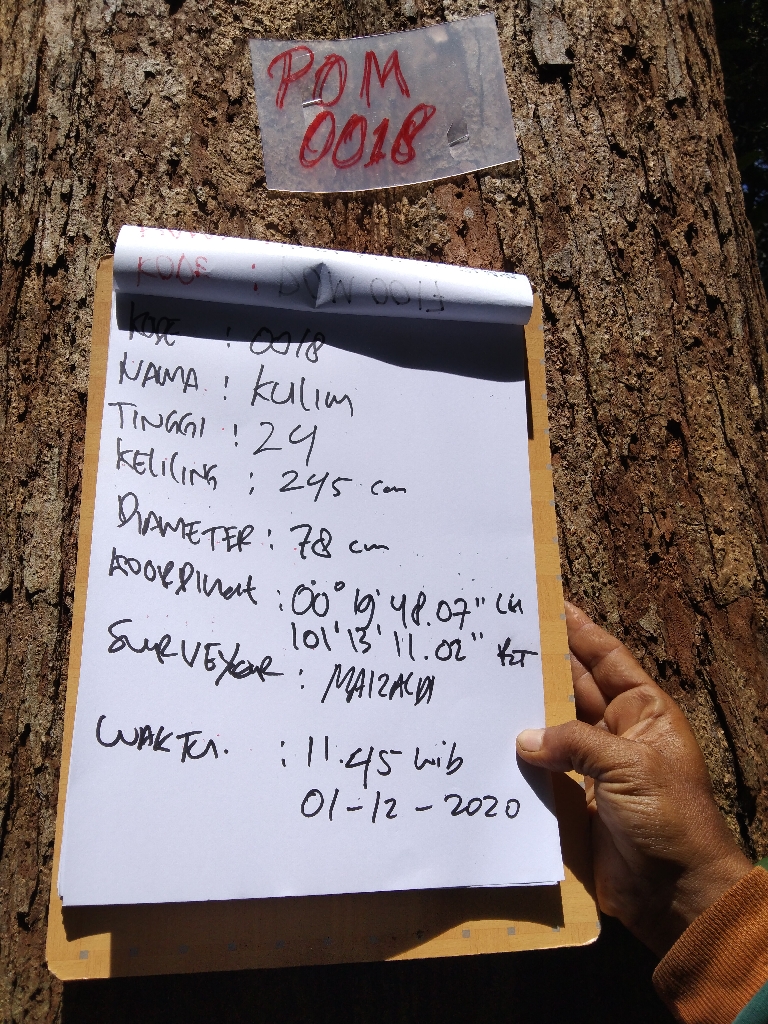 POM
0018
KODE :
KODE : 0018
NAMA : KULIM
TINGGI : 24
KELILING : 245 cm
DIAMETER : 78 cm
KOORDINAt : 00° 19' 48.07" LU
101' 13' 11.02" BT
SURVEYOR : MAIZALDI
WAKTU : 11.45 wib
01-12-2020